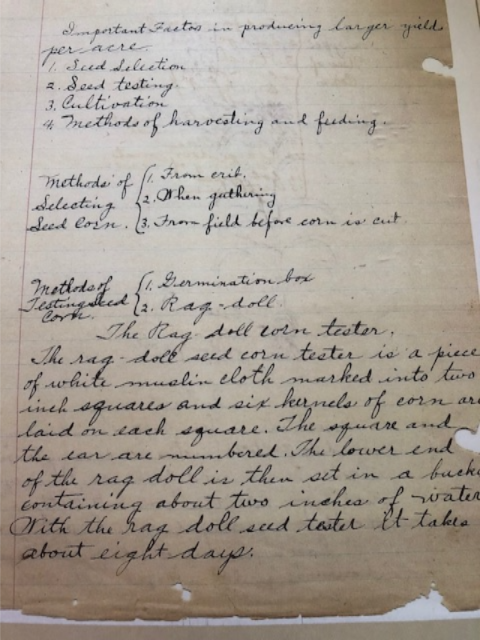 Important Factos in producing larger yield
per acre.
1. Seed Selection
2. Seed testing.
3. Cultivation
4. Methods of harvesting and feeding.
Methods of
Selecting
Seed Corn.
1. From crib.
2. When gathering
3. From field before corn is cut
Methods of
Testing seed
Corn.
1. Germination box
2. Rag-doll
The Rag-doll corn tester.
The rag-doll seed corn tester is a piece
of white muslin cloth marked into two
inch squares and six kernels of corn are
laid on each square. The square and
the ear are numbered. The lower end
of the rag doll is then set in a bucke
containing about two inches of water
With the rag doll seed tester it takes
about eight days.